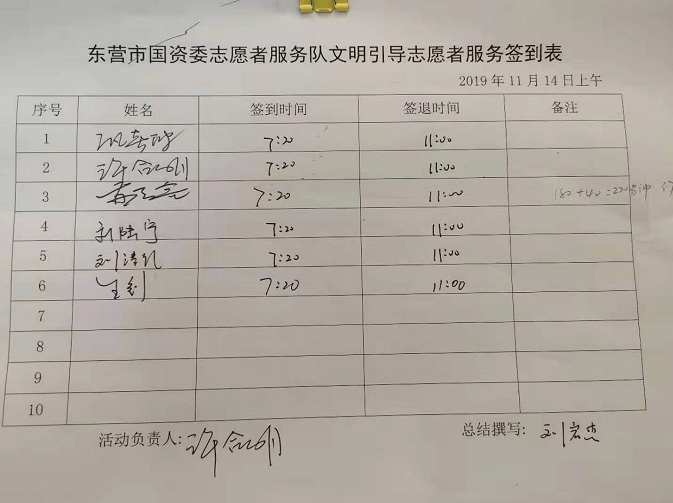 东营市国资委志愿者服务队文明引导志愿者服务签到表
2019年11月14日上午
序号 姓名 签到时间 签退时间 备注
1 7:20 11:00
2 许 7:20 11:00
3 7:20 11:00 180+40=220分钟
4 刘陆宁 7:20 11:00
5 刘 7:20 11:00
6 7:20 11:00
7
8
9
10
活动负责人: 许 总结撰写: 刘宏杰